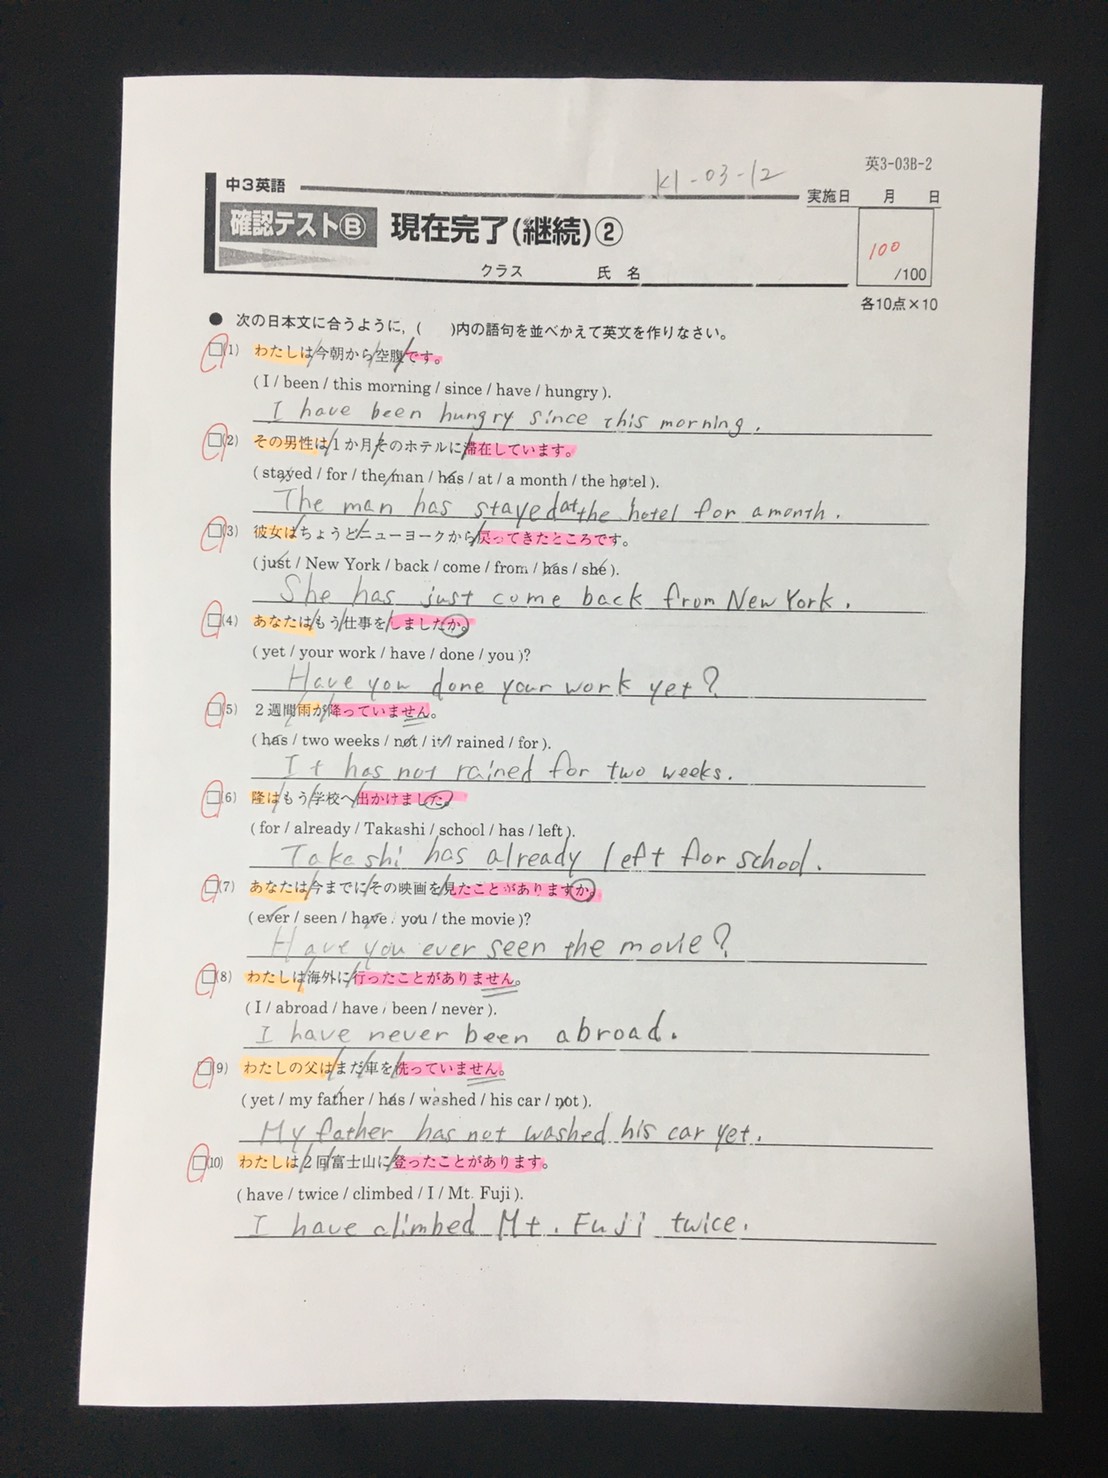 英3-03B-2
K1-03-12
中3英語
実施日 月 日
確認テストⒷ 現在完了(継続)②
100
/100
クラス 氏名
各10点×10
● 次の日本文に合うように,( )内の語句を並べかえて英文を作りなさい。
□(1) わたしは今朝から空腹です。
( I / been / this morning / since / have / hungry ).
I have been hungry since this morning.
□(2) その男性は1か月そのホテルに滞在しています。
( stayed / for / the man / has / at / a month / the hotel ).
The man has stayed at the hotel for a month.
□(3) 彼女はちょうどニューヨークから戻ってきたところです。
( just / New York / back / come / from / has / she ).
She has just come back from New York.
□(4) あなたはもう仕事をしましたか。
( yet / your work / have / done / you )?
Have you done your work yet?
□(5) 2週間雨が降っていません。
( has / two weeks / not / it / rained / for ).
It has not rained for two weeks.
□(6) 隆はもう学校へ出かけました。
( for / already / Takashi / school / has / left ).
Takashi has already left for school.
□(7) あなたは今までにその映画を見たことがありますか。
( ever / seen / have / you / the movie )?
Have you ever seen the movie?
□(8) わたしは海外に行ったことがありません。
( I / abroad / have / been / never ).
I have never been abroad.
□(9) わたしの父はまだ車を洗っていません。
( yet / my father / has / washed / his car / not ).
My father has not washed his car yet.
□(10) わたしは2回富士山に登ったことがあります。
( have / twice / climbed / I / Mt. Fuji ).
I have climbed Mt. Fuji twice.